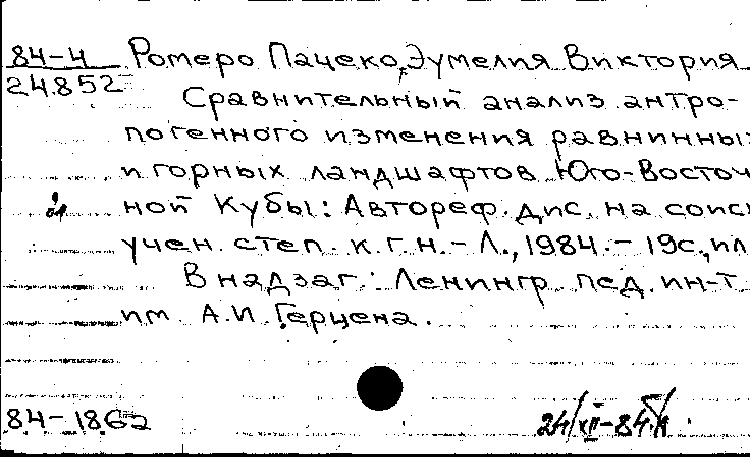 84-4 Ромеро Пачеко, Эумелия Виктория
24852 Сравнительный анализ антро-
погенного изменения равнинны
и горных ландшафтов Юго-Восточ
ной Кубы: Автореф. дис. на соиск
учен. степ. к.г.н. - Л., 1984. - 19с., ил
В надзаг.: Ленингр. пед. ин-т
им. А.И. Герцена.
84-1862